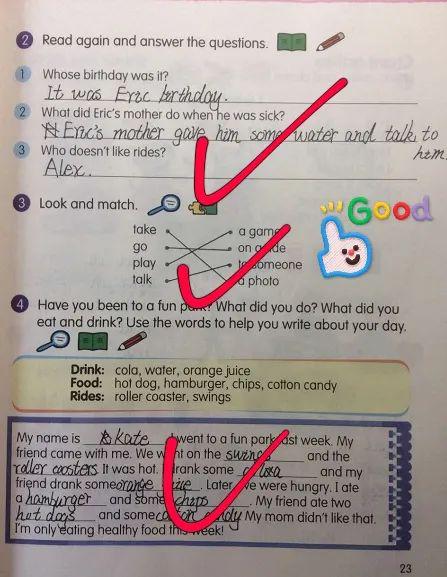 2 Read again and answer the questions.
1 Whose birthday was it?
It was Eric birthday.
2 What did Eric's mother do when he was sick?
Eric's mother gave him some water and talk to
him.
3 Who doesn't like rides?
Alex.
3 Look and match.
Good
take a game
go on a ride
play to someone
talk a photo
4 Have you been to a fun park? What did you do? What did you
eat and drink? Use the words to help you write about your day.
Drink: cola, water, orange juice
Food: hot dog, hamburger, chips, cotton candy
Rides: roller coaster, swings
My name is Kate. I went to a fun park last week. My
friend came with me. We went on the swings and the
roller coasters. It was hot. I drank some and my
friend drank some orange juice. Later, we were hungry. I ate
a hamburger and some chips. My friend ate two
hot dogs and some cotton candy. My mom didn't like that.
I'm only eating healthy food this week!
23